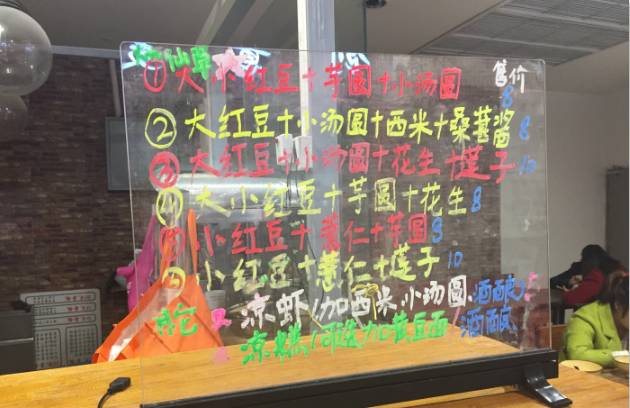 烧仙草
售价
① 大小红豆+芋圆+小汤圆 8
② 大红豆+小汤圆+西米+桑葚酱 8
③ 大红豆+小汤圆+花生+莲子 10
④ 大小红豆+芋圆+花生 8
⑤ 小红豆+薏仁+芋圆 8
⑥ 小红豆+薏仁+莲子 10
凉虾/加西米.小汤圆.酒酿 5
凉糕/可选加黄豆面/酒酿